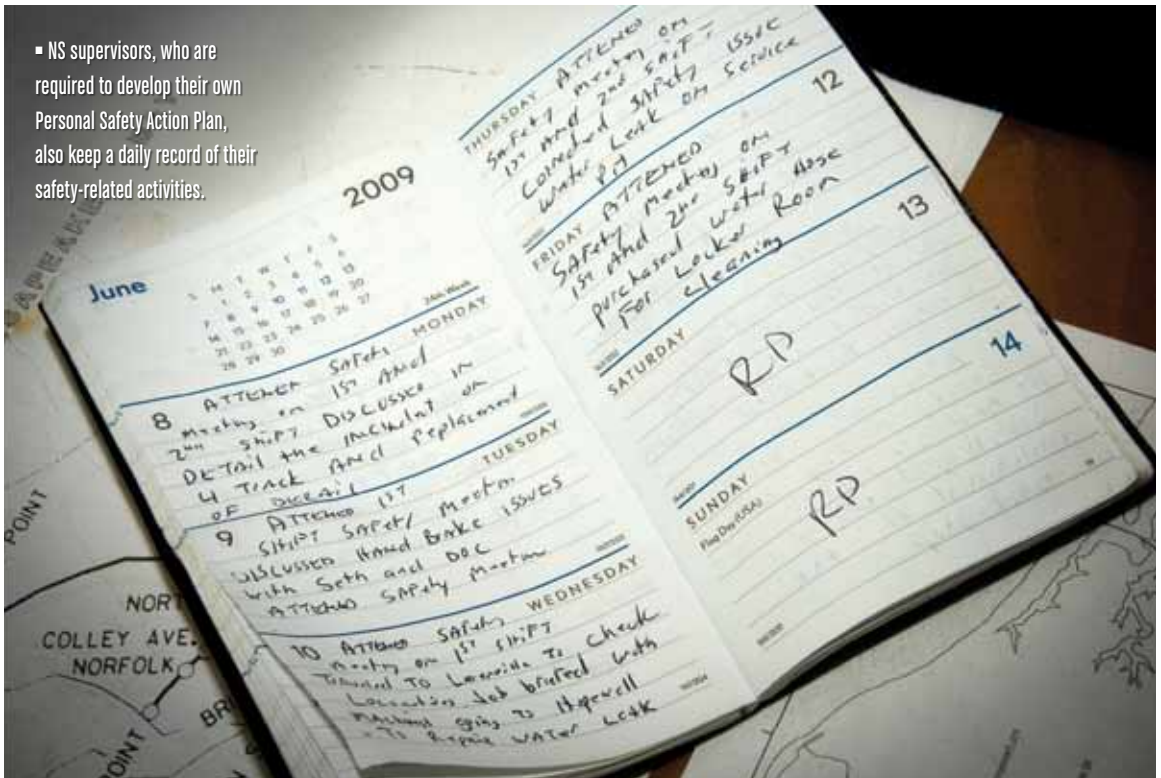 ▪ NS supervisors, who are
required to develop their own
Personal Safety Action Plan,
also keep a daily record of their
safety-related activities.
2009
June
S M T W T F S
1 2 3 4 5 6
7 8 9 10 11 12 13
14 15 16 17 18 19 20
21 22 23 24 25 26 27
28 29 30
24th Week
MONDAY
8 ATTENED SAFETY
Meeting on 1ST And
2ND SHIFT DISCUSSED IN
DETAIL the INCIDENT on
4 TRACK And Replacement
OF DERAIL
TUESDAY
9 ATTENED 1ST
SHIFT SAFETY Meeting
DISCUSSED HAND BRAKE ISSUES
with Seth and DOC
ATTENED SAFETY Meeting
WEDNESDAY
10 ATTENED SAFETY
Meeting on 1ST SHIFT
TO check
Location Job briefed with
going To Hopewell
To Repair WATER LEAK
THURSDAY
ATTENED
SAFETY Meeting on
1ST And 2ND SHIFT
Corrected SAFETY ISSUE
Water Leak on Service
Pit
12
FRIDAY
ATTENED
SAFETY Meeting on
1ST And 2ND SHIFT
purchased water Hose
For Locker Room
cleaning
13
SATURDAY
RD
14
SUNDAY
Flag Day (USA)
RD
POINT
NOR
COLLEY AVE.
NORFOLK
BR
OINT